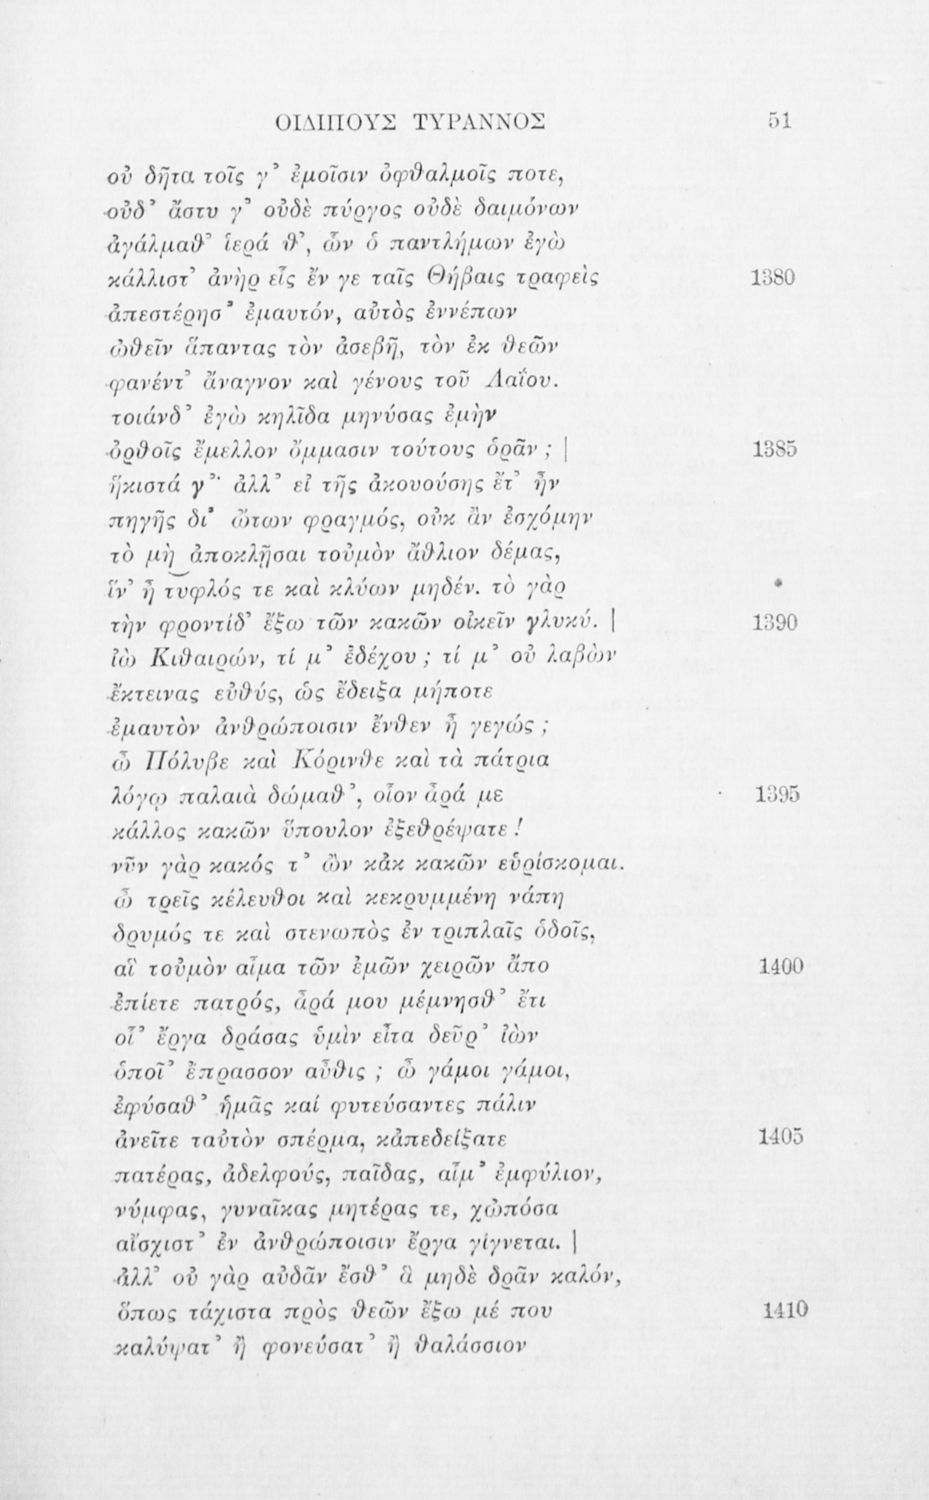 ΟΙΔΙΠΟΥΣ ΤΥΡΑΝΝΟΣ 51
οὐ δῆτα τοῖς γ’ ἐμοῖσιν ὀφθαλμοῖς ποτε,
οὐδ’ ἄστυ γ’ οὐδὲ πύργος οὐδὲ δαιμόνων
ἀγάλμαθ’ ἱερά θ’, ὧν ὁ παντλήμων ἐγὼ
κάλλιστ’ ἀνὴρ εἷς ἔν γε ταῖς Θήβαις τραφεὶς 1380
ἀπεστέρησ’ ἐμαυτόν, αὐτὸς ἐννέπων
ὠθεῖν ἅπαντας τὸν ἀσεβῆ, τὸν ἐκ θεῶν
φανέντ’ ἄναγνον καὶ γένους τοῦ Λαΐου.
τοιάνδ’ ἐγὼ κηλῖδα μηνύσας ἐμὴν
ὀρθοῖς ἔμελλον ὄμμασιν τούτους ὁρᾶν ; | 1385
ἥκιστά γ’· ἀλλ’ εἰ τῆς ἀκουούσης ἔτ’ ἦν
πηγῆς δι’ ὤτων φραγμός, οὐκ ἂν ἐσχόμην
τὸ μὴ ἀποκλῇσαι τοὐμὸν ἄθλιον δέμας,
ἵν’ ἦ τυφλός τε καὶ κλύων μηδέν. τὸ γὰρ
τὴν φροντίδ’ ἔξω τῶν κακῶν οἰκεῖν γλυκύ. | 1390
ἰὼ Κιθαιρών, τί μ’ ἐδέχου ; τί μ’ οὐ λαβὼν
ἔκτεινας εὐθύς, ὡς ἔδειξα μήποτε
ἐμαυτὸν ἀνθρώποισιν ἔνθεν ἦ γεγώς ;
ὦ Πόλυβε καὶ Κόρινθε καὶ τὰ πάτρια
λόγῳ παλαιὰ δώμαθ’, οἷον ἆρά με 1395
κάλλος κακῶν ὕπουλον ἐξεθρέψατε !
νῦν γὰρ κακός τ’ ὢν κἀκ κακῶν εὑρίσκομαι.
ὦ τρεῖς κέλευθοι καὶ κεκρυμμένη νάπη
δρυμός τε καὶ στενωπὸς ἐν τριπλαῖς ὁδοῖς,
αἳ τοὐμὸν αἷμα τῶν ἐμῶν χειρῶν ἄπο 1400
ἐπίετε πατρός, ἆρά μου μέμνησθ’ ἔτι
οἷ’ ἔργα δράσας ὑμὶν εἶτα δεῦρ’ ἰὼν
ὁποῖ’ ἔπρασσον αὖθις ; ὦ γάμοι γάμοι,
ἐφύσαθ’ ἡμᾶς καί φυτεύσαντες πάλιν
ἀνεῖτε ταὐτὸν σπέρμα, κἀπεδείξατε 1405
πατέρας, ἀδελφούς, παῖδας, αἷμ’ ἐμφύλιον,
νύμφας, γυναῖκας μητέρας τε, χὠπόσα
αἴσχιστ’ ἐν ἀνθρώποισιν ἔργα γίγνεται. |
ἀλλ’ οὐ γὰρ αὐδᾶν ἔσθ’ ἃ μηδὲ δρᾶν καλόν,
ὅπως τάχιστα πρὸς θεῶν ἔξω μέ που 1410
καλύψατ’ ἢ φονεύσατ’ ἢ θαλάσσιον